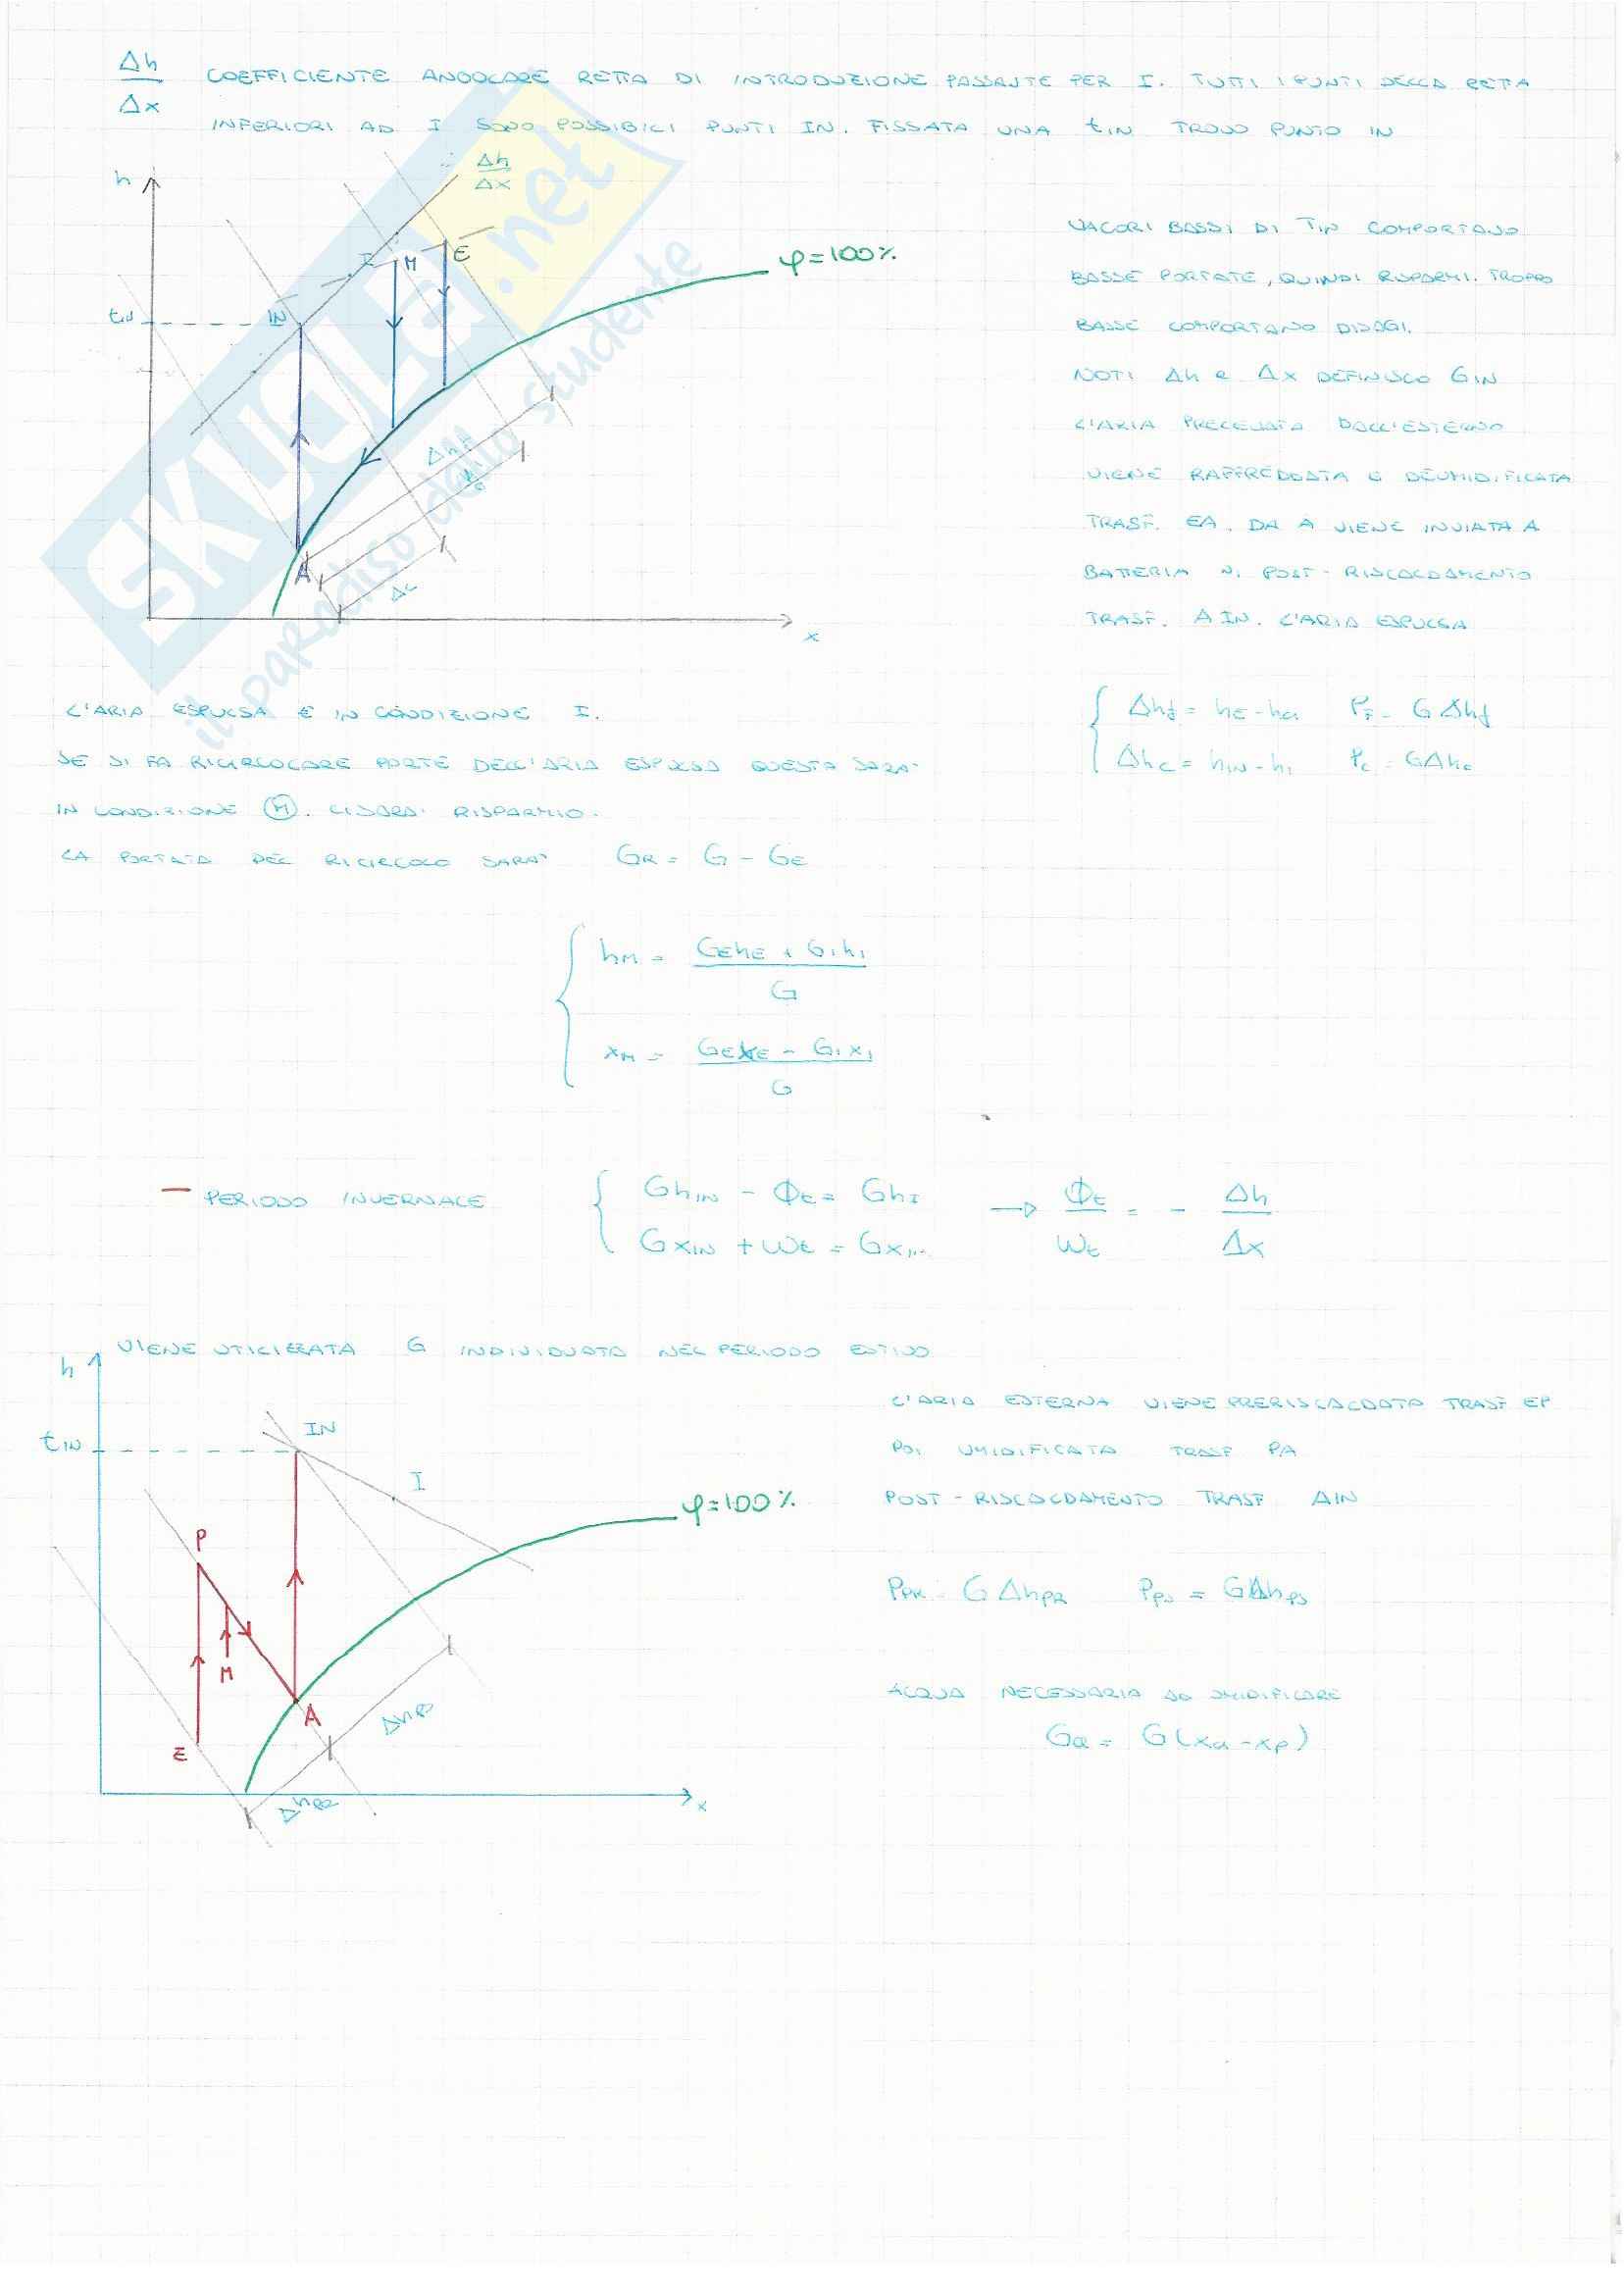 Δh COEFFICIENTE ANGOLARE RETTA DI INTRODUZIONE PASSANTE PER I. TUTTI I PUNTI DELLA RETTA
Δx
INFERIORI AD I SONO POSSIBILI PUNTI IN. FISSATA UNA tIN TROVO PUNTO IN
h
Δh
Δx
I
M
E
φ=100%
tIN
IN
A
Δh
Δ
x
VALORI BASSI DI TIN COMPORTANO
BASSE PORTATE, QUINDI RISPARMI. TROPPO
BASSE COMPORTANO DISAGI.
NOTI Δh e Δx DEFINISCO GIN
L'ARIA PRELEVATA DALL'ESTERNO
VIENE RAFFREDDATA E DEUMIDIFICATA
TRASF. EA. DA A VIENE INVIATA A
BATTERIA DI POST-RISCALDAMENTO
TRASF. AIN. L'ARIA ESPULSA
SKUOLA.net
il paradiso dello studente
L'ARIA ESPULSA È IN CONDIZIONE I.
SE SI FA RICIRCOLARE PARTE DELL'ARIA ESPULSA QUESTA SARA'
IN CONDIZIONE M. CI SARA' RISPARMIO.
LA PORTATA DEL RICIRCOLO SARA' GR = G - GE
Δhf = hE - ha PF = GΔhf
Δhc = hIN - hi Pc = GΔhc
hM = GEhE + GIhI
G
xM = GExE - GIxI
G
- PERIODO INVERNALE
GhIN - Φt = GhI → Φt = - Δh
GxIN + Wt = Gx Wt Δx
VIENE UTILIZZATA G INDIVIDUATA NEL PERIODO ESTIVO
h
tIN
IN
I
P
M
E
A
φ=100%
x
L'ARIA ESTERNA VIENE PRERISCALDATA TRASF EP
POI UMIDIFICATA TRASF PA
POST-RISCALDAMENTO TRASF AIN
PPR = GΔhPR PPS = GΔhPS
ACQUA NECESSARIA AD UMIDIFICARE
Ga = G(xa - xp)